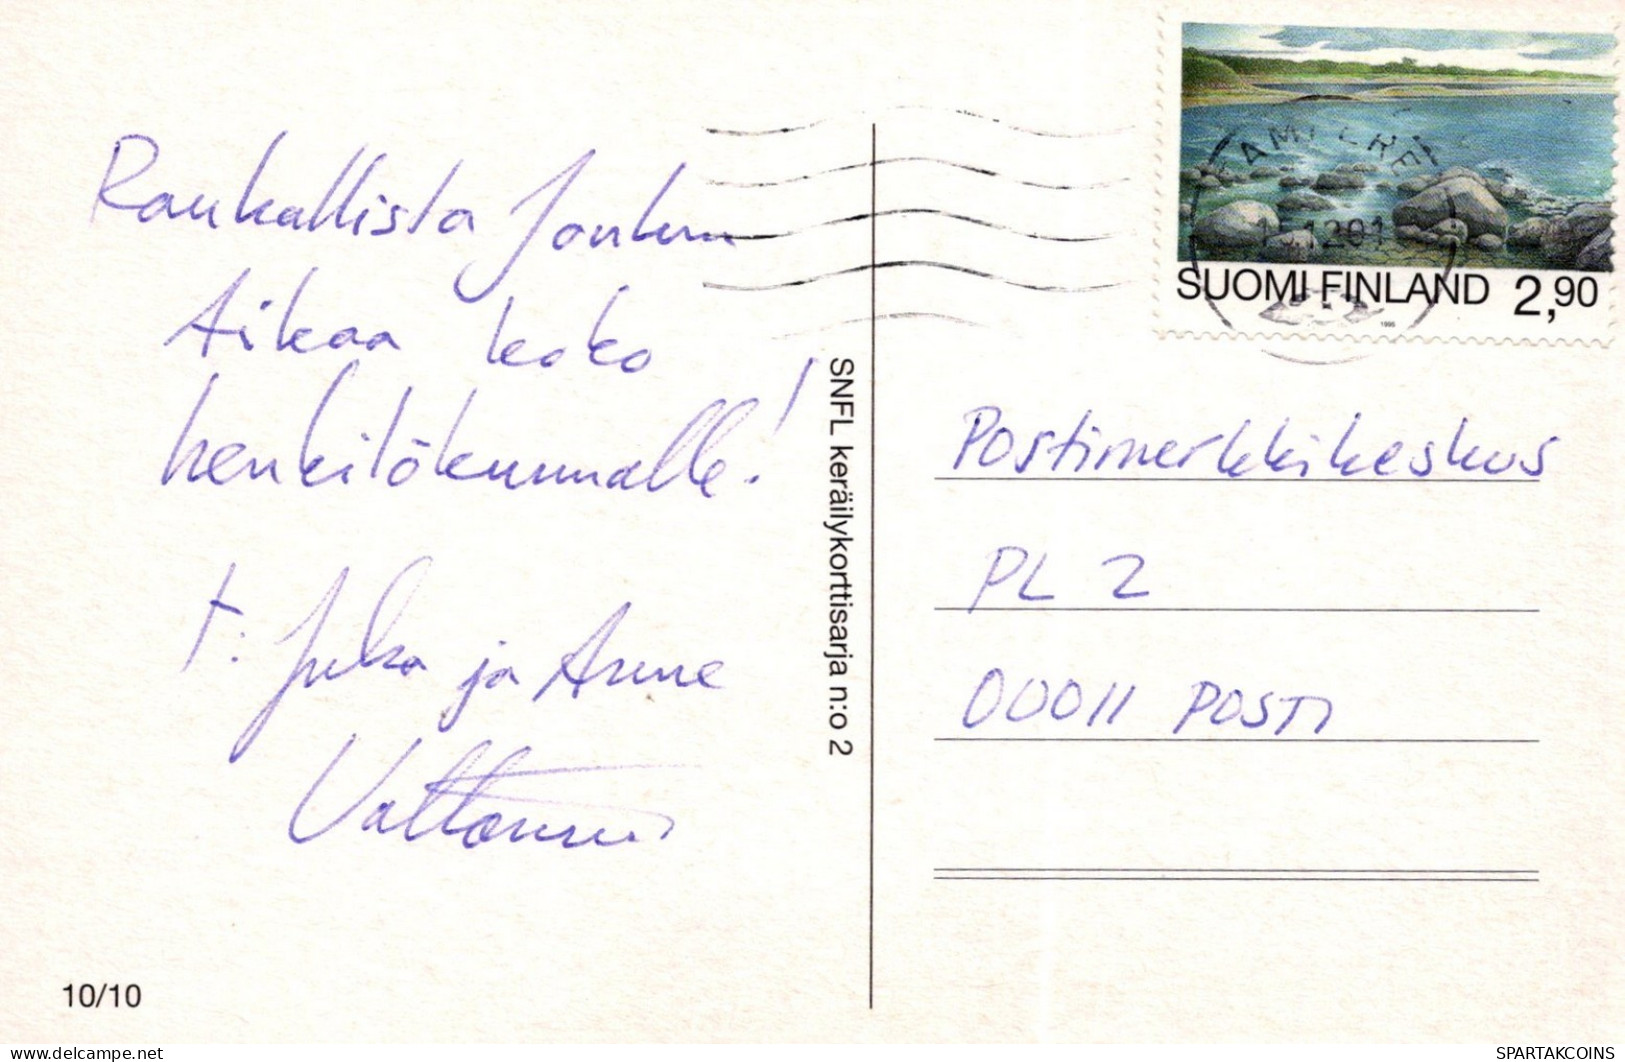 Rauhallista Joulun
Aikaa koko
henkilökunnalle!
t: Juha ja Anne
SNFL keräilykorttisarja n:o 2
10/10
SUOMI FINLAND 2,90
1995
TAMPERE
Postimerkkikeskus
PL 2
00011 POSTI
delcampe.net
SPARTAKCOINS